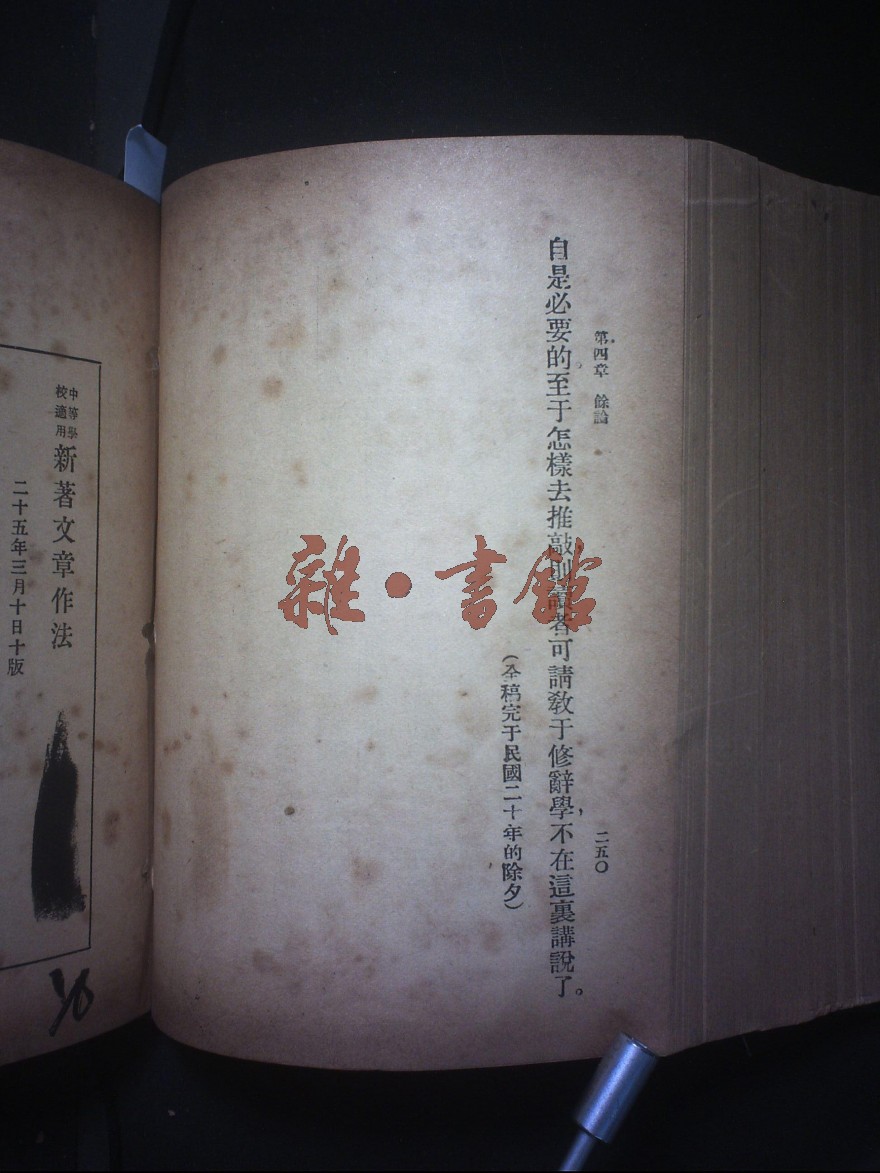 第四章　餘論
二五〇
自是必要的。至于怎樣去推敲，則讀者可請教于修辭學，不在這裏講說了。
（全稿完于民國二十年的除夕）
雜·書館
中等學校適用
新著文章作法
二十五年三月十日十版